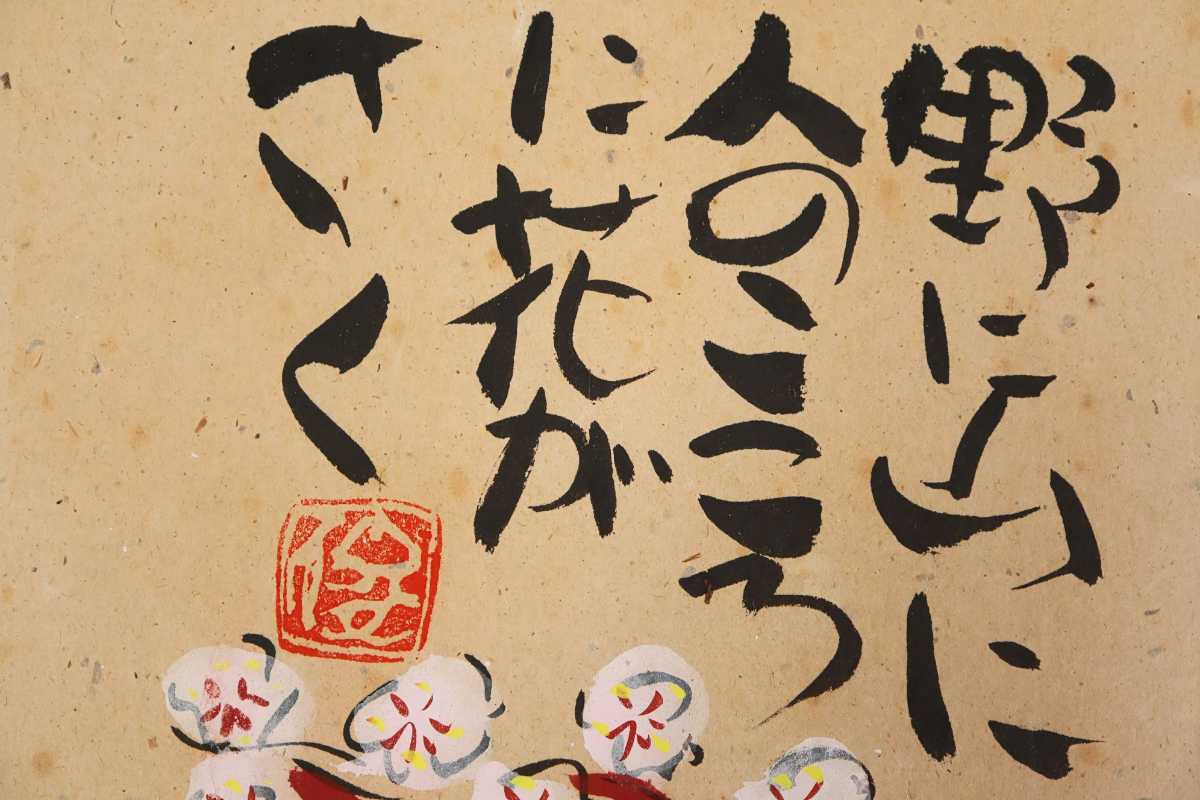 野に山に
人のこころ
に花が
さく
俊